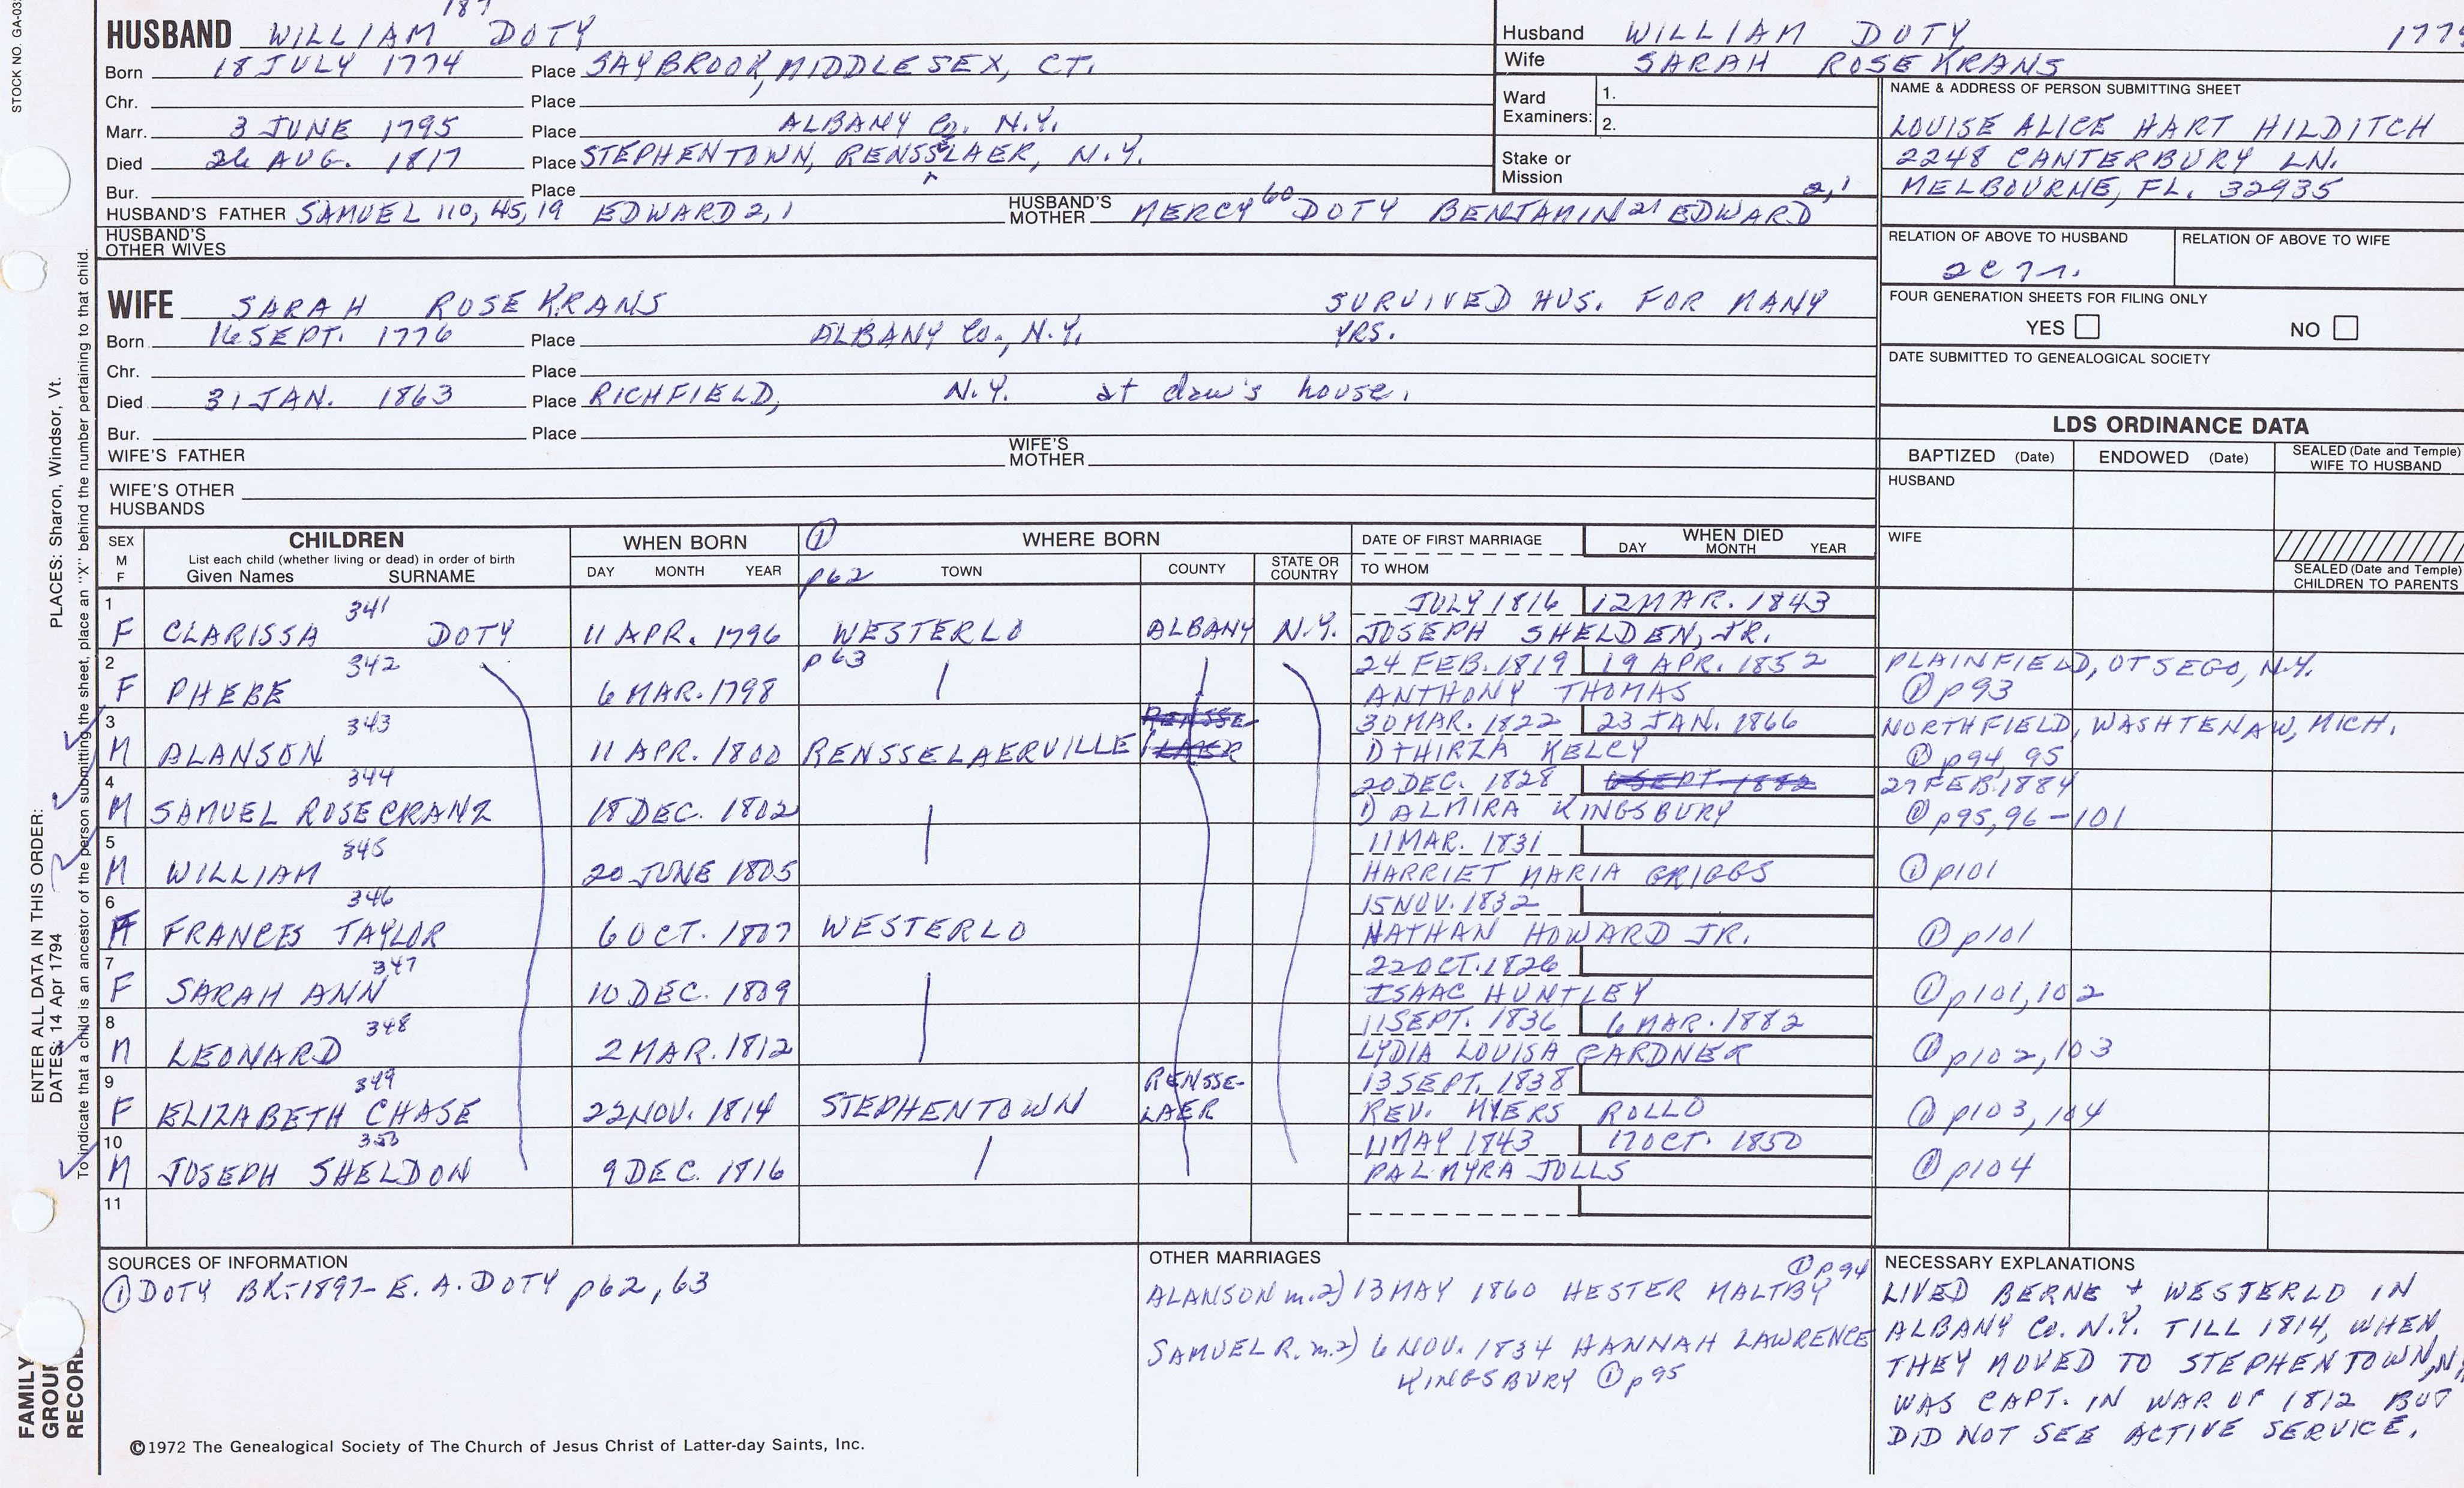 STOCK NO. GA-03
187
HUSBAND WILLIAM DOTY
Born 18 JULY 1774 Place SAYBROOK, MIDDLESEX, CT.
Chr. Place
Marr. 3 JUNE 1795 Place ALBANY Co. N.Y.
Died 26 AUG. 1817 Place STEPHENTOWN, RENSSLAER, N.Y.
Bur. Place
HUSBAND'S FATHER SAMUEL 110, 45, 19 EDWARD 2, 1 HUSBAND'S MOTHER MERCY 60 DOTY BENJAMIN 21 EDWARD 2,1
HUSBAND'S OTHER WIVES
Husband WILLIAM DOTY 1774
Wife SARAH ROSEKRANS
Ward Examiners: 1.
2.
Stake or Mission
NAME & ADDRESS OF PERSON SUBMITTING SHEET
LOUISE ALICE HART HILDITCH
2248 CANTERBURY LN.
MELBOURNE, FL. 32935
RELATION OF ABOVE TO HUSBAND RELATION OF ABOVE TO WIFE
2C 7r.
FOUR GENERATION SHEETS FOR FILING ONLY
YES NO
DATE SUBMITTED TO GENEALOGICAL SOCIETY
WIFE SARAH ROSEKRANS SURVIVED HUS. FOR MANY
Born 16 SEPT. 1776 Place ALBANY Co., N.Y. YRS.
Chr. Place
Died 31 JAN. 1863 Place RICHFIELD, N.Y. at daw's house.
Bur. Place
WIFE'S FATHER WIFE'S MOTHER
WIFE'S OTHER HUSBANDS
LDS ORDINANCE DATA
BAPTIZED (Date) ENDOWED (Date) SEALED (Date and Temple) WIFE TO HUSBAND
HUSBAND
WIFE
SEALED (Date and Temple) CHILDREN TO PARENTS
SEX M F CHILDREN WHEN BORN ① WHERE BORN DATE OF FIRST MARRIAGE WHEN DIED
List each child (whether living or dead) in order of birth DAY MONTH YEAR
Given Names SURNAME DAY MONTH YEAR p62 TOWN COUNTY STATE OR COUNTRY TO WHOM
1 341 JULY 1816 12 MAR. 1843
F CLARISSA DOTY 11 APR. 1796 WESTERLO ALBANY N.Y. JOSEPH SHELDEN, JR.
2 342 p63 24 FEB. 1819 19 APR. 1852 PLAINFIELD, OTSEGO, N.Y.
F PHEBE 6 MAR. 1798 ANTHONY THOMAS ① p93
3 343 RENSSE 30 MAR. 1822 23 JAN. 1866 NORTHFIELD, WASHTENAW, MICH.
M ALANSON 11 APR. 1800 RENSSELAERVILLE LAER 1) THIRZA KELCY ① p94, 95
4 344 20 DEC. 1828 6 SEPT. 1882 27 FEB. 1884
M SAMUEL ROSECRANZ 18 DEC. 1802 1) ALMIRA KINGSBURY ① p95, 96-101
5 345 11 MAR. 1831
M WILLIAM 20 JUNE 1805 HARRIET MARIA GRIGGS ① p101
6 346 15 NOV. 1832
F FRANCES TAYLOR 6 OCT. 1807 WESTERLO NATHAN HOWARD JR. ① p101
7 347 22 OCT. 1826
F SARAH ANN 10 DEC. 1809 ISAAC HUNTLEY ① p101, 102
8 348 11 SEPT. 1836 6 MAR. 1882
M LEONARD 2 MAR. 1812 LYDIA LOUISA GARDNER ① p102, 103
9 349 RENSSE- 13 SEPT. 1838
F ELIZABETH CHASE 22 NOV. 1814 STEPHENTOWN LAER REV. MYERS ROLLO ① p103, 104
10 350 11 MAY 1843 17 OCT. 1850
M JOSEPH SHELDON 9 DEC. 1816 PALMYRA JOLLS ① p104
11
SOURCES OF INFORMATION
① DOTY BK.-1897- E. A. DOTY p62, 63
OTHER MARRIAGES
① p94
ALANSON m. 2) 13 MAY 1860 HESTER MALTBY
SAMUEL R. m. 2) 6 NOV. 1834 HANNAH LAWRENCE
KINGSBURY ① p95
NECESSARY EXPLANATIONS
LIVED BERNE + WESTERLO IN
ALBANY Co. N.Y. TILL 1814, WHEN
THEY MOVED TO STEPHENTOWN, N.
WAS CAPT. IN WAR OF 1812 BUT
DID NOT SEE ACTIVE SERVICE.
©1972 The Genealogical Society of The Church of Jesus Christ of Latter-day Saints, Inc.
FAMILY GROUP RECORD
ENTER ALL DATA IN THIS ORDER:
DATES: 14 Apr 1794 PLACES: Sharon, Windsor, Vt.
To indicate that a child is an ancestor of the person submitting the sheet, place an "X" behind the number pertaining to that child.